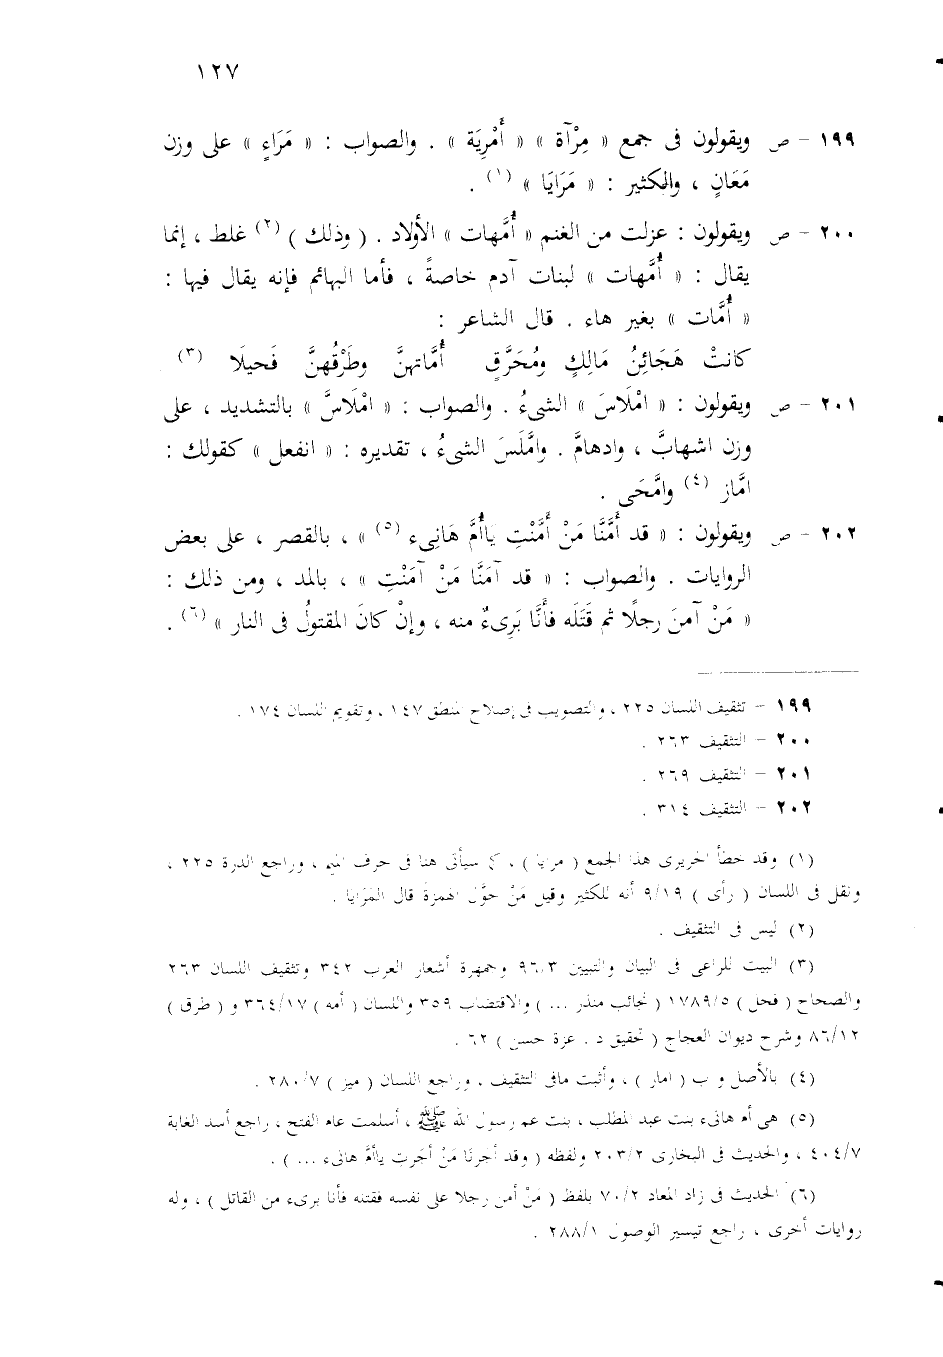 ١٢٧
١٩٩ - ص ويقولون فى جمع « مِرْآة » « أَمْرِيَة » . والصواب : « مَرَاءٍ » على وزن
مَعَانٍ ، والكثير : « مَرَايَا » (١) .
٢٠٠ - ص ويقولون : عزلت من الغنم « أُمَّهات » الأولاد . ( وذلك ) (٢) غلط ، إنما
يقال : « أُمَّهات » لبنات آدم خاصةً ، فأما البهائم فإنه يقال فيها :
« أُمَّات » بغير هاء . قال الشاعر :
كانتْ هَجَائِنُ مَالِكٍ ومُحَرَّقٍ أُمَّاتهنَّ وطَرْقُهنَّ فَحيلَا (٣)
٢٠١ - ص ويقولون : « امْلَاسَ » الشىءُ . والصواب : « امْلَاسَّ » بالتشديد ، على
وزن اشهابَّ ، وادهامَّ . وامَّلَسَ الشىءُ ، تقديره : « انفعل » كقولك :
امَّاز (٤) وامَّحَى .
٢٠٢ - ص ويقولون : « قد أَمَّنَّا مَنْ أَمَّنْتِ ياأُمَّ هَانِىء (٥) » ، بالقصر ، على بعض
الروايات . والصواب : « قد آمَنَّا مَنْ آمَنْتِ » ، بالمد ، ومن ذلك :
« مَنْ آمنَ رجلًا ثم قَتَلَه فأَنَّا بَرِىءٌ منه ، وإنْ كانَ المقتولُ فى النار » (٦) .
١٩٩ - تثقيف اللسان ٢٢٥ ، والتصويب فى إصلاح المنطق ١٤٧ ، وتقويم اللسان ١٧٤ .
٢٠٠ - التثقيف ٢٦٣ .
٢٠١ - التثقيف ٢٦٩ .
٢٠٢ - التثقيف ٣١٤ .
(١) وقد خطأ الحريرى هذا الجمع ( مرايا ) ، كما سيأتى هنا فى حرف الميم ، وراجع الدرة ٢٢٥ ،
ونقل فى اللسان ( رأى ) ٩/١٩ أنه للكثير وقيل مَنْ حوَّل الهمزة قال المَرَايا .
(٢) ليس فى التثقيف .
(٣) البيت للراعى فى البيان والتبيين ٩٦/٣ وجمهرة أشعار العرب ٣٤٢ وتثقيف اللسان ٢٦٣
والصحاح ( فحل ) ١٧٨٩/٥ ( نجائب منذر ... ) والاقتضاب ٣٥٩ واللسان ( أمه ) ٣٦٤/١٧ و ( طرق )
٨٦/١٢ وشرح ديوان العجاج ( تحقيق د . عزة حسن ) ٦٢ .
(٤) بالأصل و ب ( امار ) ، وأثبت مافى التثقيف ، وراجع اللسان ( ميز ) ٢٨٠/٧ .
(٥) هى أم هانىء بنت عبد المطلب ، بنت عم رسول الله ﷺ ، أسلمت عام الفتح ، راجع أسد الغابة
٤٠٤/٧ ، والحديث فى البخارى ٢٠٣/٢ ولفظه ( وقد أجرنَا مَنْ أجَرتِ ياأمَّ هانىء ... ) .
(٦) الحديث فى زاد المعاد ٧٠/٢ بلفظ ( مَنْ أمن رجلا على نفسه فقتله فأنا برىء من القاتل ) ، وله
روايات أخرى ، راجع تيسير الوصول ٢٨٨/١ .